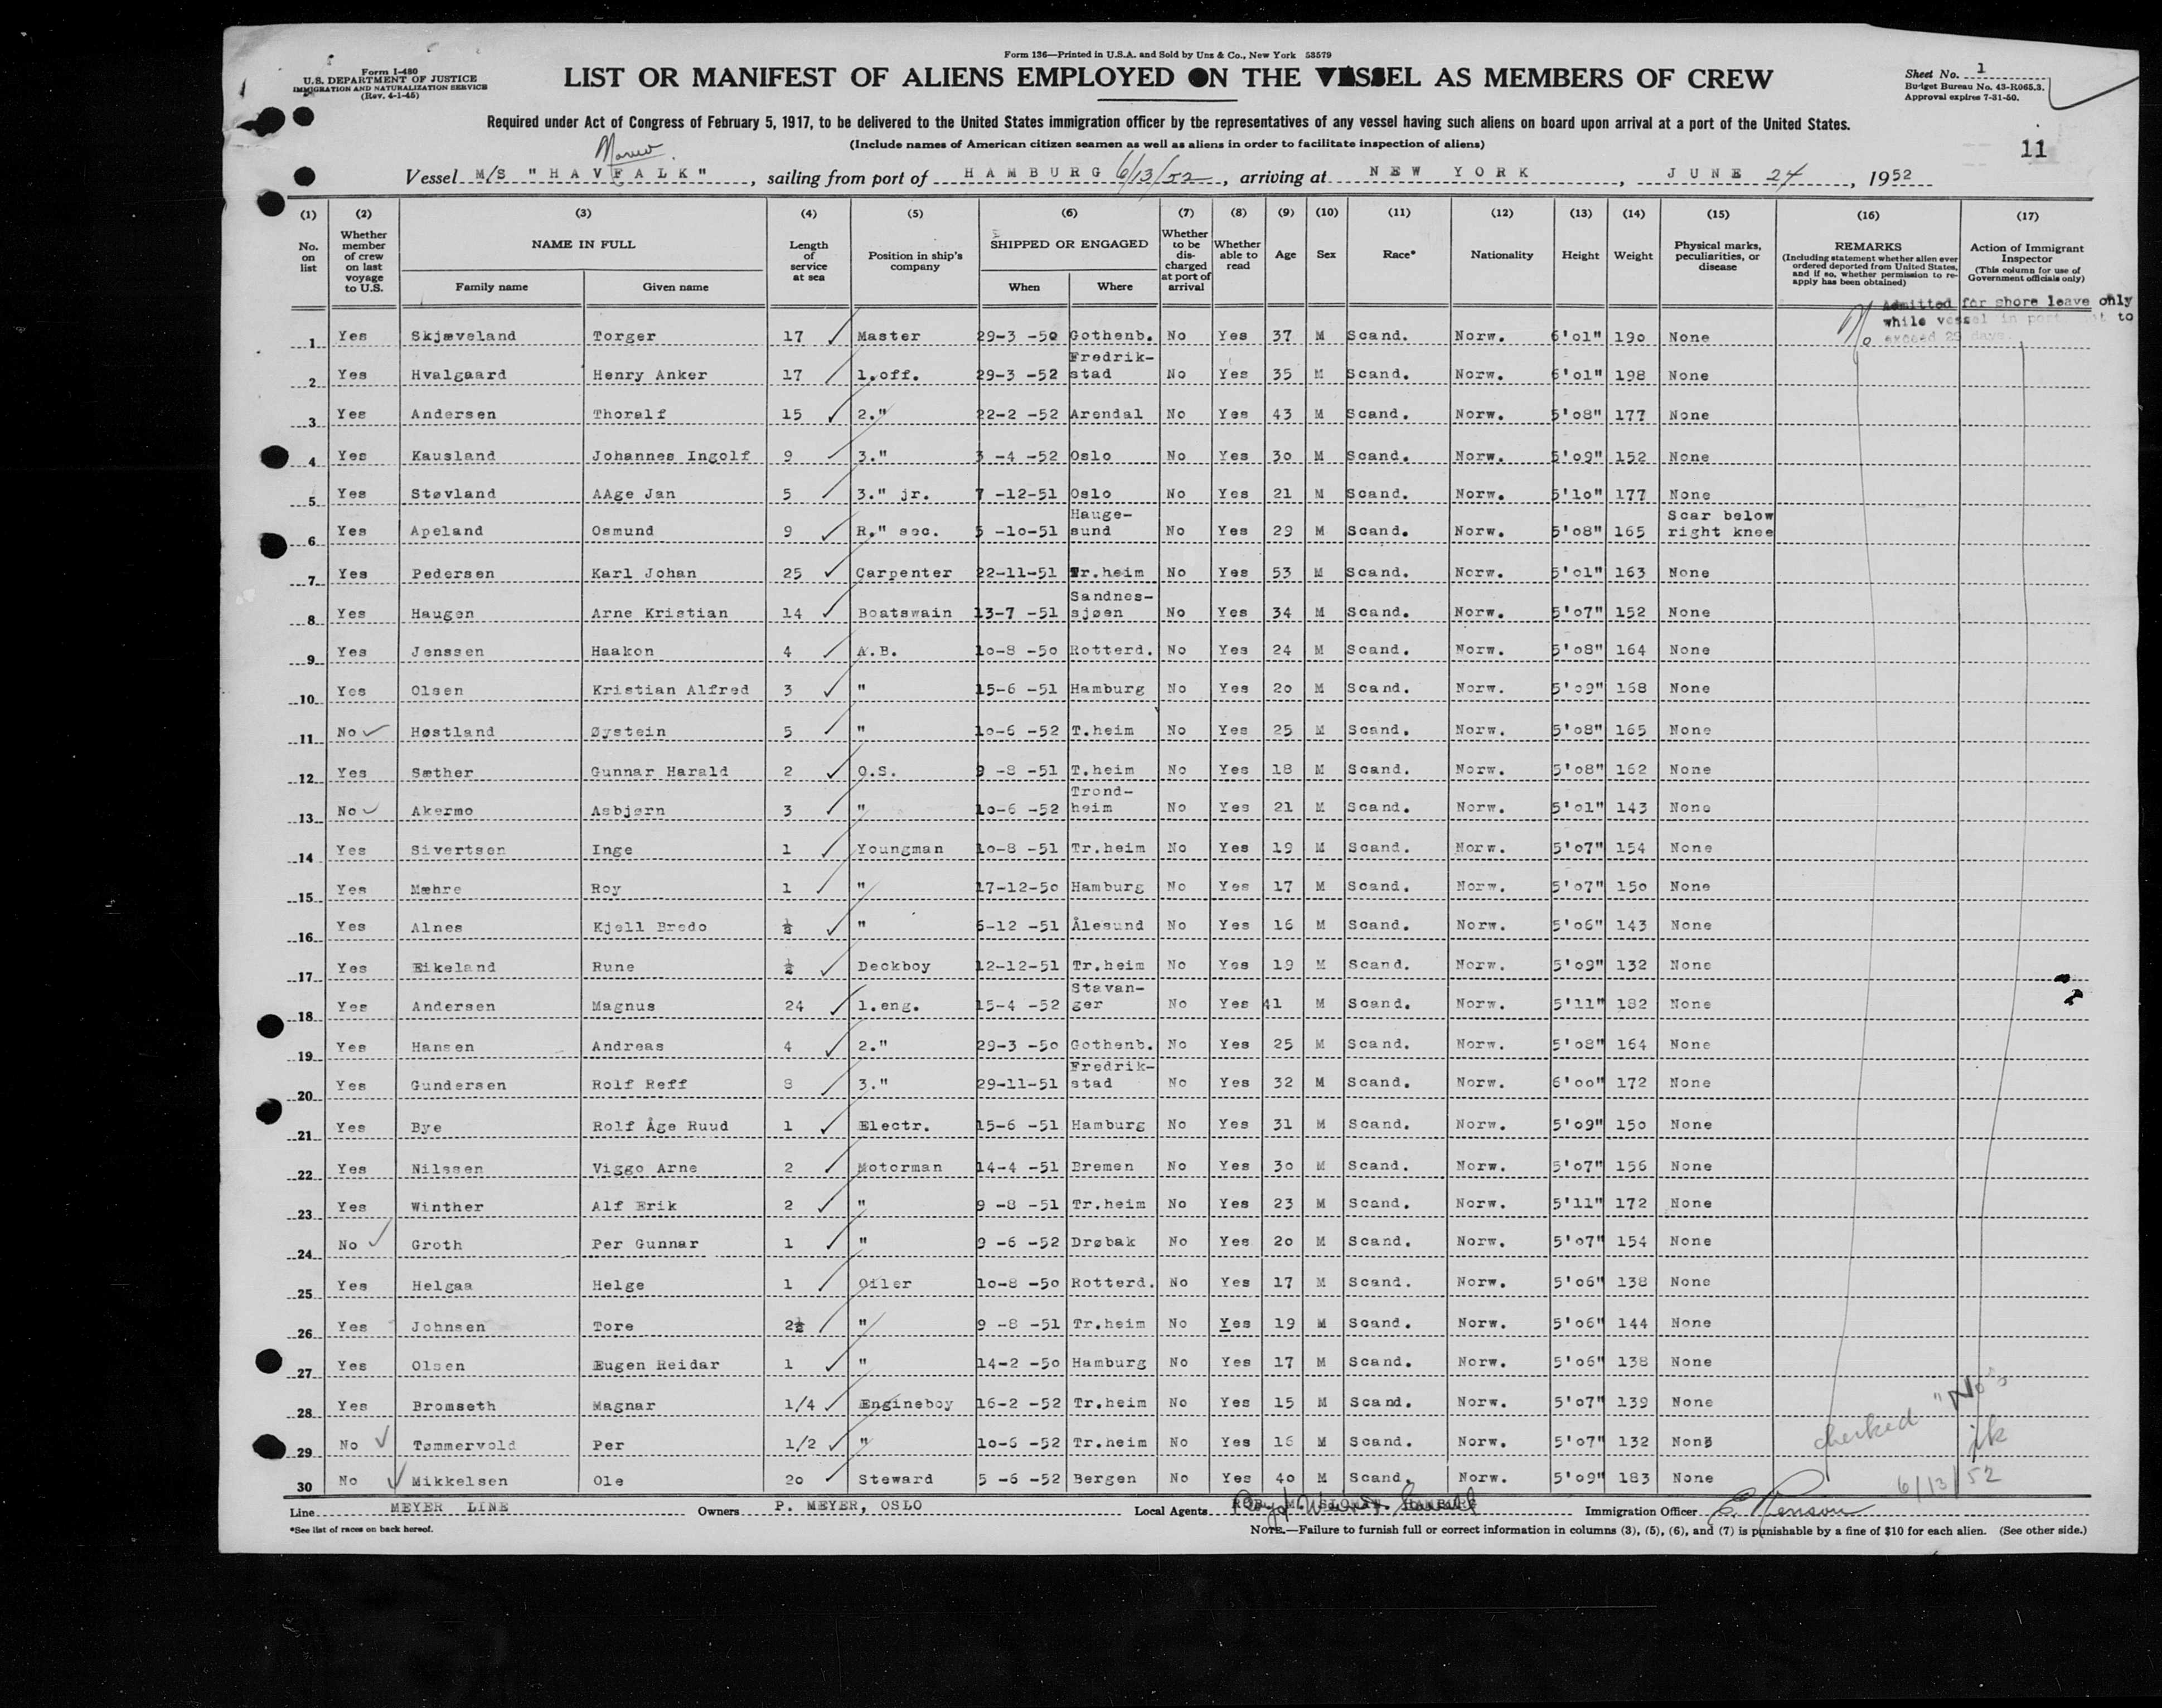 Form 136—Printed in U.S.A. and Sold by Unz & Co., New York 53579
Form I-480
U.S. DEPARTMENT OF JUSTICE
IMMIGRATION AND NATURALIZATION SERVICE
(Rev. 4-1-45)
LIST OR MANIFEST OF ALIENS EMPLOYED ON THE VESSEL AS MEMBERS OF CREW
Sheet No. 1
Budget Bureau No. 43-R065.3.
Approval expires 7-31-50.
Required under Act of Congress of February 5, 1917, to be delivered to the United States immigration officer by the representatives of any vessel having such aliens on board upon arrival at a port of the United States.
(Include names of American citizen seamen as well as aliens in order to facilitate inspection of aliens)
11
Vessel M/S "HAVFALK", sailing from port of HAMBURG 6/13/52, arriving at NEW YORK, JUNE 24, 1952
(1) (2) (3) (4) (5) (6) (7) (8) (9) (10) (11) (12) (13) (14) (15) (16) (17)
No. on list
Whether member of crew on last voyage to U.S.
NAME IN FULL
Family name Given name
Length of service at sea
Position in ship's company
SHIPPED OR ENGAGED
When Where
Whether to be discharged at port of arrival
Whether able to read
Age Sex Race* Nationality Height Weight
Physical marks, peculiarities, or disease
REMARKS
(Including statement whether alien ever ordered deported from United States, and if so, whether permission to re-apply has been obtained)
Action of Immigrant Inspector
(This column for use of Government officials only)
Admitted for shore leave only
while vessel in port not to
exceed 29 days.
1 Yes Skjæveland Torger 17 Master 29-3 -50 Gothenb. No Yes 37 M Scand. Norw. 6'01" 190 None No
2 Yes Hvalgaard Henry Anker 17 1.off. 29-3 -52 Fredrik-stad No Yes 35 M Scand. Norw. 6'01" 198 None
3 Yes Andersen Thoralf 15 2." 22-2 -52 Arendal No Yes 43 M Scand. Norw. 5'08" 177 None
4 Yes Kausland Johannes Ingolf 9 3." 3 -4 -52 Oslo No Yes 30 M Scand. Norw. 5'09" 152 None
5 Yes Støvland AAge Jan 5 3." jr. 7 -12-51 Oslo No Yes 21 M Scand. Norw. 5'10" 177 None
6 Yes Apeland Osmund 9 R." sec. 5 -10-51 Hauge-sund No Yes 29 M Scand. Norw. 5'08" 165 Scar below right knee
7 Yes Pedersen Karl Johan 25 Carpenter 22-11-51 Tr.heim No Yes 53 M Scand. Norw. 5'01" 163 None
8 Yes Haugen Arne Kristian 14 Boatswain 13-7 -51 Sandnes-sjøen No Yes 34 M Scand. Norw. 5'07" 152 None
9 Yes Jenssen Haakon 4 A.B. 10-8 -50 Rotterd. No Yes 24 M Scand. Norw. 5'08" 164 None
10 Yes Olsen Kristian Alfred 3 " 15-6 -51 Hamburg No Yes 20 M Scand. Norw. 5'09" 168 None
11 No Høstland Øystein 5 " 10-6 -52 T.heim No Yes 25 M Scand. Norw. 5'08" 165 None
12 Yes Sæther Gunnar Harald 2 O.S. 9 -8 -51 T.heim No Yes 18 M Scand. Norw. 5'08" 162 None
13 No Akermo Asbjørn 3 " 10-6 -52 Trond-heim No Yes 21 M Scand. Norw. 5'01" 143 None
14 Yes Sivertsen Inge 1 Youngman 10-8 -51 Tr.heim No Yes 19 M Scand. Norw. 5'07" 154 None
15 Yes Mæhre Roy 1 " 17-12-50 Hamburg No Yes 17 M Scand. Norw. 5'07" 150 None
16 Yes Alnes Kjell Bredo ½ " 6-12 -51 Ålesund No Yes 16 M Scand. Norw. 5'06" 143 None
17 Yes Eikeland Rune ½ Deckboy 12-12-51 Tr.heim No Yes 19 M Scand. Norw. 5'09" 132 None
18 Yes Andersen Magnus 24 1.eng. 15-4 -52 Stavan-ger No Yes 41 M Scand. Norw. 5'11" 182 None
19 Yes Hansen Andreas 4 2." 29-3 -50 Gothenb. No Yes 25 M Scand. Norw. 5'08" 164 None
20 Yes Gundersen Rolf Reff 8 3." 29-11-51 Fredrik-stad No Yes 32 M Scand. Norw. 6'00" 172 None
21 Yes Bye Rolf Åge Ruud 1 Electr. 15-6 -51 Hamburg No Yes 31 M Scand. Norw. 5'09" 150 None
22 Yes Nilssen Viggo Arne 2 Motorman 14-4 -51 Bremen No Yes 30 M Scand. Norw. 5'07" 156 None
23 Yes Winther Alf Erik 2 " 9 -8 -51 Tr.heim No Yes 23 M Scand. Norw. 5'11" 172 None
24 No Groth Per Gunnar 1 " 9 -6 -52 Drøbak No Yes 20 M Scand. Norw. 5'07" 154 None
25 Yes Helgaa Helge 1 Oiler 10-8 -50 Rotterd. No Yes 17 M Scand. Norw. 5'06" 138 None
26 Yes Johnsen Tore 2½ " 9 -8 -51 Tr.heim No Yes 19 M Scand. Norw. 5'06" 144 None
27 Yes Olsen Eugen Reidar 1 " 14-2 -50 Hamburg No Yes 17 M Scand. Norw. 5'06" 138 None
28 Yes Bromseth Magnar 1/4 Engineboy 16-2 -52 Tr.heim No Yes 15 M Scand. Norw. 5'07" 139 None
29 No Tømmervold Per 1/2 " 10-6 -52 Tr.heim No Yes 16 M Scand. Norw. 5'07" 132 Non3
30 No Mikkelsen Ole 20 Steward 5 -6 -52 Bergen No Yes 40 M Scand. Norw. 5'09" 183 None
checked "No's
6/13/52
Line MEYER LINE Owners P. MEYER, OSLO Local Agents ROB. M. SLOMAN. HAMBURG Immigration Officer
*See list of races on back hereof.
NOTE.—Failure to furnish full or correct information in columns (3), (5), (6), and (7) is punishable by a fine of $10 for each alien. (See other side.)